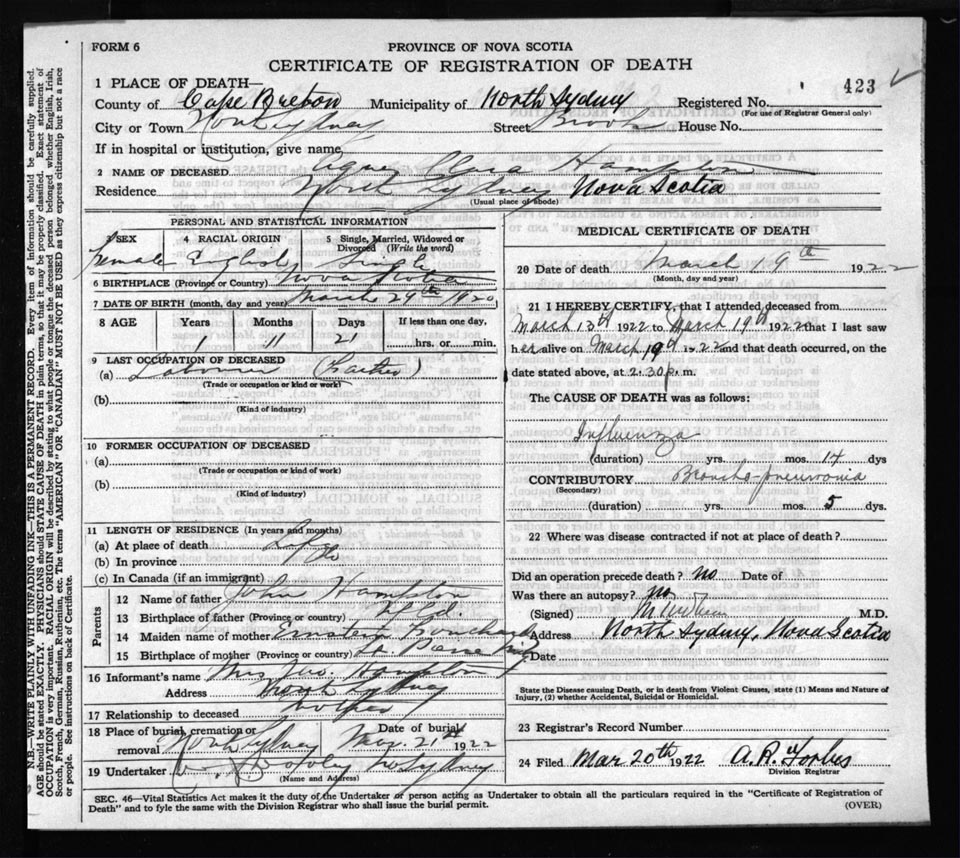 FORM 6
PROVINCE OF NOVA SCOTIA
CERTIFICATE OF REGISTRATION OF DEATH
423
1 PLACE OF DEATH—
County of Cape Breton Municipality of North Sydney Registered No.
(For use of Registrar General only)
City or Town North Sydney Street Brook House No.
If in hospital or institution, give name
2 NAME OF DECEASED
Residence North Sydney Nova Scotia
(Usual place of abode)
PERSONAL AND STATISTICAL INFORMATION
SEX 4 RACIAL ORIGIN 5 Single, Married, Widowed or Divorced (Write the word)
Female English Single
6 BIRTHPLACE (Province or Country) Nova Scotia
7 DATE OF BIRTH (month, day and year) March 29th 1920
8 AGE Years Months Days If less than one day,
1 11 21 hrs. or min.
9 LAST OCCUPATION OF DECEASED
(a) Labourer (Father)
(Trade or occupation or kind of work)
(b)
(Kind of industry)
10 FORMER OCCUPATION OF DECEASED
(a)
(Trade or occupation or kind of work)
(b)
(Kind of industry)
11 LENGTH OF RESIDENCE (In years and months)
(a) At place of death Life
(b) In province
(c) In Canada (if an immigrant)
Parents
12 Name of father John Hampton
13 Birthplace of father (Province or country) Nfld
14 Maiden name of mother
15 Birthplace of mother (Province or country)
16 Informant's name Mrs Jno. Hampton
Address North Sydney
17 Relationship to deceased mother
18 Place of burial, cremation or removal North Sydney Date of burial Mar. 21st 1922
19 Undertaker N Sydney
(Name and Address)
MEDICAL CERTIFICATE OF DEATH
20 Date of death March 19th 1922
(Month, day and year)
21 I HEREBY CERTIFY, that I attended deceased from
March 13th 1922 to March 19th 1922 that I last saw
her alive on March 19th 1922 and that death occurred, on the
date stated above, at 2.30 p.m.
The CAUSE OF DEATH was as follows:
Influenza
(duration) yrs. mos. 14 dys
CONTRIBUTORY Broncho pneumonia
(Secondary)
(duration) yrs. mos. 5 dys.
22 Where was disease contracted if not at place of death?
Did an operation precede death? no Date of
Was there an autopsy? no
(Signed) M.D.
Address North Sydney, Nova Scotia
Date
State the Disease causing Death, or in death from Violent Causes, state (1) Means and Nature of Injury, (2) whether Accidental, Suicidal or Homicidal.
23 Registrar's Record Number
24 Filed Mar 20th 1922 A. R. Forbes
Division Registrar
SEC. 46—Vital Statistics Act makes it the duty of the Undertaker or person acting as Undertaker to obtain all the particulars required in the "Certificate of Registration of
Death" and to fyle the same with the Division Registrar who shall issue the burial permit.
(OVER)
N.B.—WRITE PLAINLY WITH UNFADING INK—THIS IS A PERMANENT RECORD. Every item of information should be carefully supplied.
AGE should be stated EXACTLY. PHYSICIANS should STATE CAUSE OF DEATH in plain terms, so that it may be properly classified. Exact statement of
OCCUPATION is very important. RACIAL ORIGIN will be described by stating to what people or tongue the deceased person belonged whether English, Irish,
Scotch, French, German, Russian, Ruthenian, etc. The terms "AMERICAN" OR "CANADIAN" MUST NOT BE USED as they express citizenship but not a race
or people. See instructions on back of Certificate.